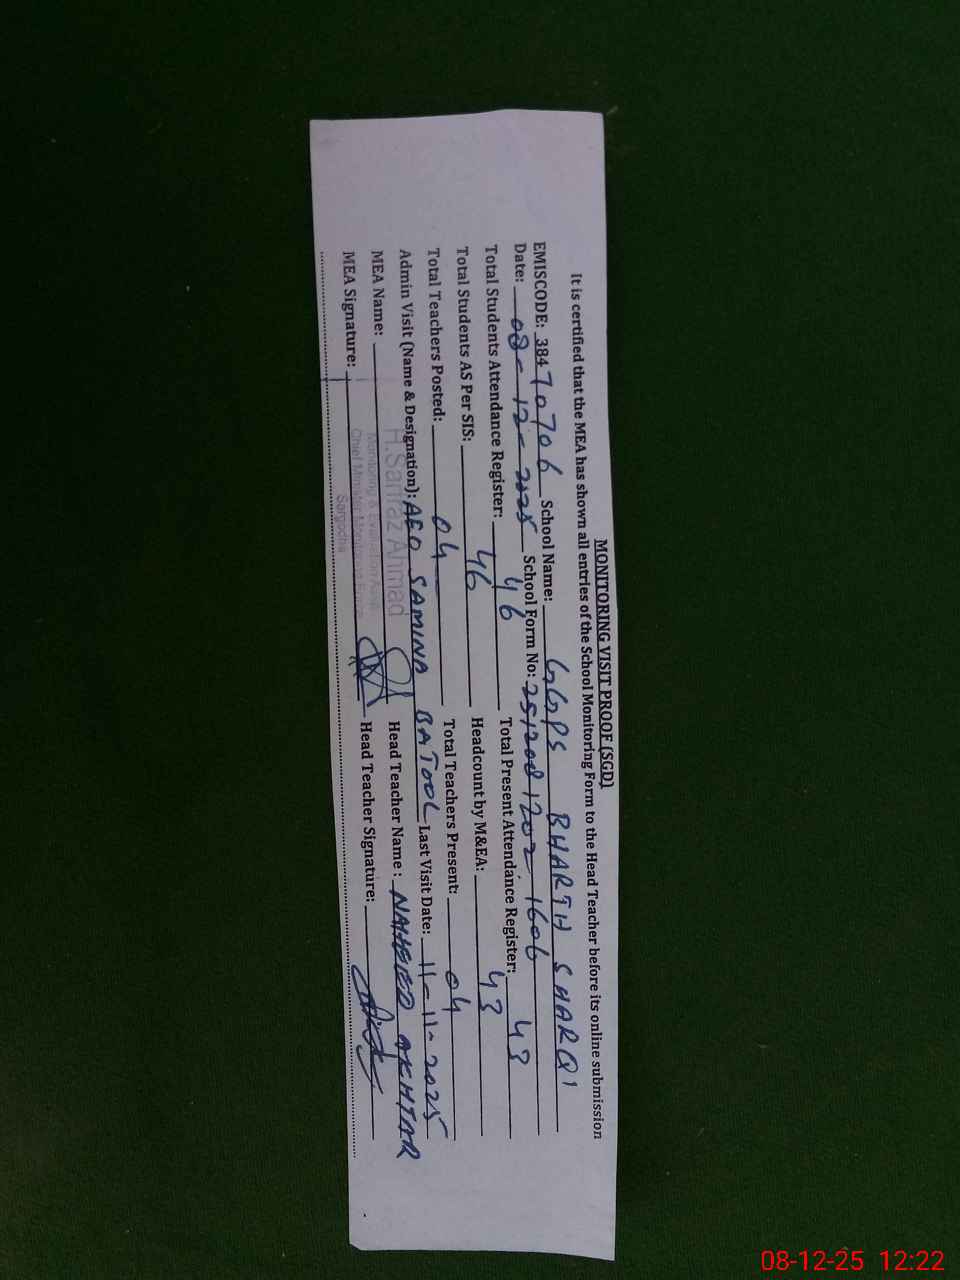 MONITORING VISIT PROOF (SGD)
It is certified that the MEA has shown all entries of the School Monitoring Form to the Head Teacher before its online submission
EMISCODE: 38470706 School Name: GGPS BHARTH SHARQI
Date: 08-12-2025 School Form No: 25120812021606
Total Students Attendance Register: 46 Total Present Attendance Register: 43
Total Students AS Per SIS: 46 Headcount by M&EA: 43
Total Teachers Posted: 04 Total Teachers Present: 04
Admin Visit (Name & Designation): AEO SAMINA BATOOL Last Visit Date: 11-11-2025
MEA Name: H.Sarfraz Ahmad Head Teacher Name: NAHEED AKHTAR
Monitoring & Evaluation
MEA Signature: Head Teacher Signature:
Chief Minister Monitoring Force
Sargodha
08-12-25 12:22